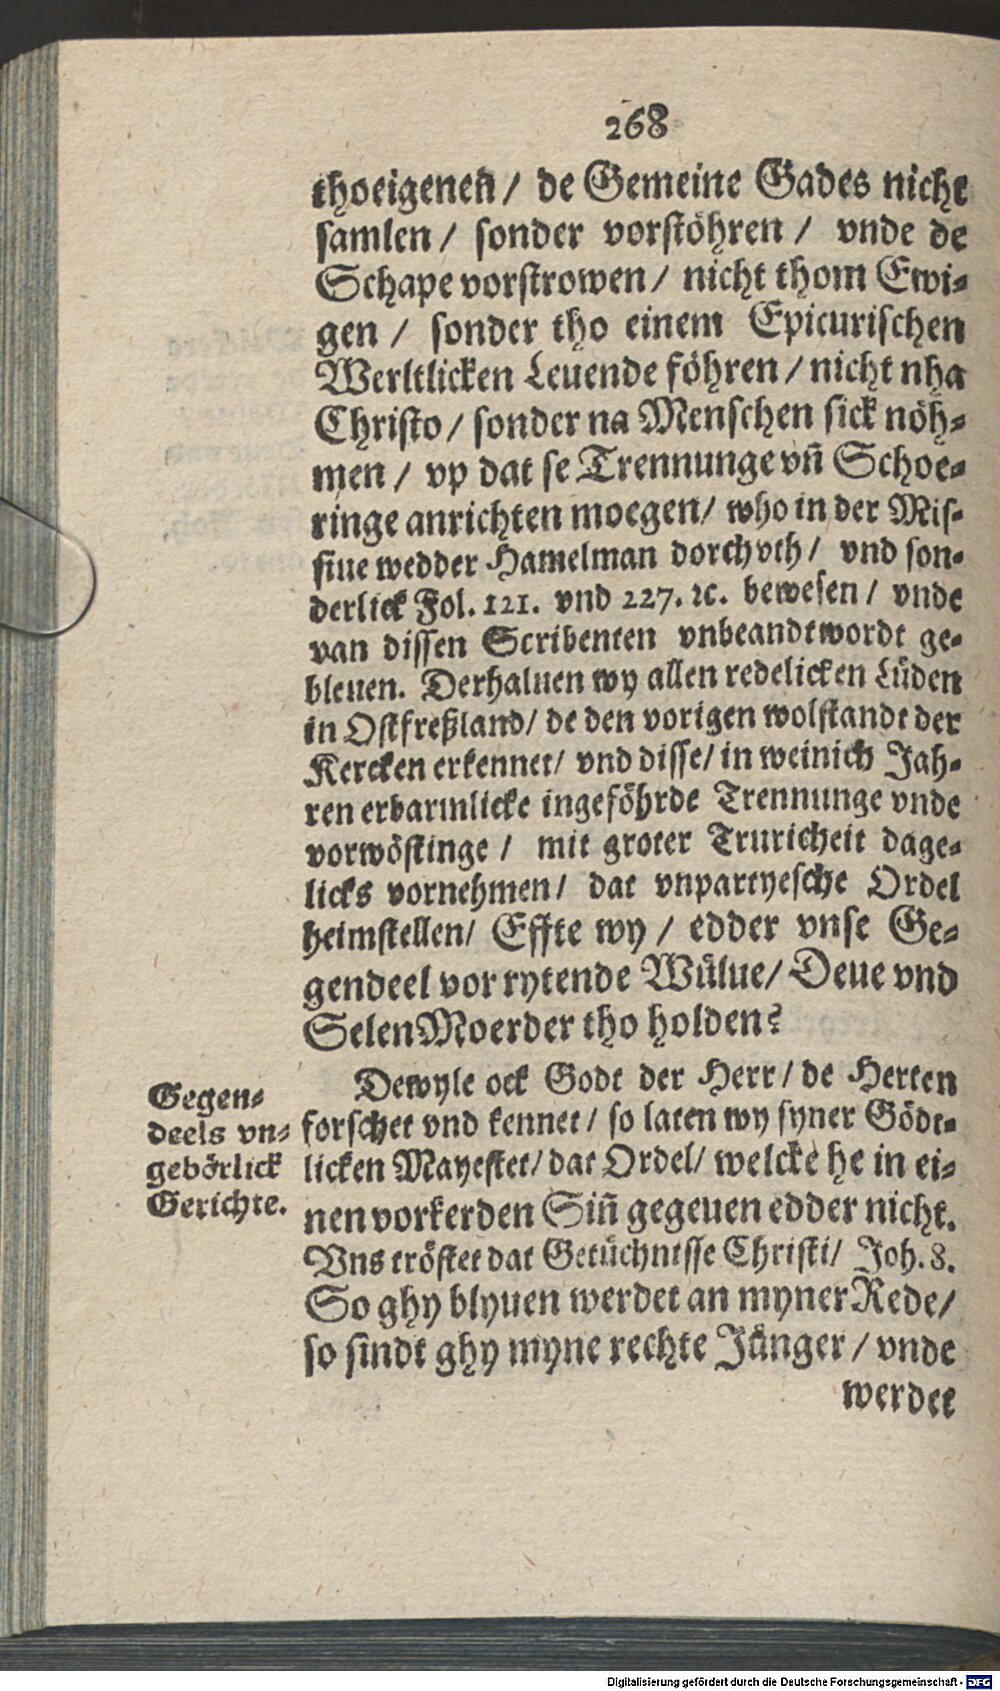 268
thoeigenen / de Gemeine Gades nicht
samlen / sonder vorstöhren / vnde de
Schape vorstrowen / nicht thom Ewi-
gen / sonder tho einem Epicurischen
Werltlicken Leuende föhren / nicht nha
Christo / sonder na Menschen sick nöh-
men / vp dat se Trennunge vn̄ Schoe-
ringe anrichten moegen / who in der Mis-
siue wedder Hamelman dorchvth / vnd son-
derlick Fol. 121. vnd 227. ꝛc. bewesen / vnde
van dissen Scribenten vnbeandtwordt ge-
bleuen. Derhaluen wy allen redelicken Lüden
in Ostfreßland / de den vorigen wolstandt der
Kercken erkennet / vnd disse / in weinich Jah-
ren erbarmlicke ingeföhrde Trennunge vnde
vorwöstinge / mit groter Truricheit dage-
licks vornehmen / dat vnpartyesche Ordel
heimstellen / Effte wy / edder vnse Ge-
gendeel vor rytende Wülue / Deue vnd
Selen Moerder tho holden?
Dewyle ock Godt der Herr / de Herten
forschet vnd kennet / so laten wy syner Gödt-
licken Mayestet / dat Ordel / welcke he in ei-
nen vorkerden Sin̄ gegeuen edder nicht.
Vns tröstet dat Getüchnisse Christi / Joh. 8.
So ghy blyuen werdet an myner Rede /
so sindt ghy myne rechte Jünger / vnde
werdet
Gegen-
deels vn-
gebörlick
Gerichte.
Digitalisierung gefördert durch die Deutsche Forschungsgemeinschaft - DFG